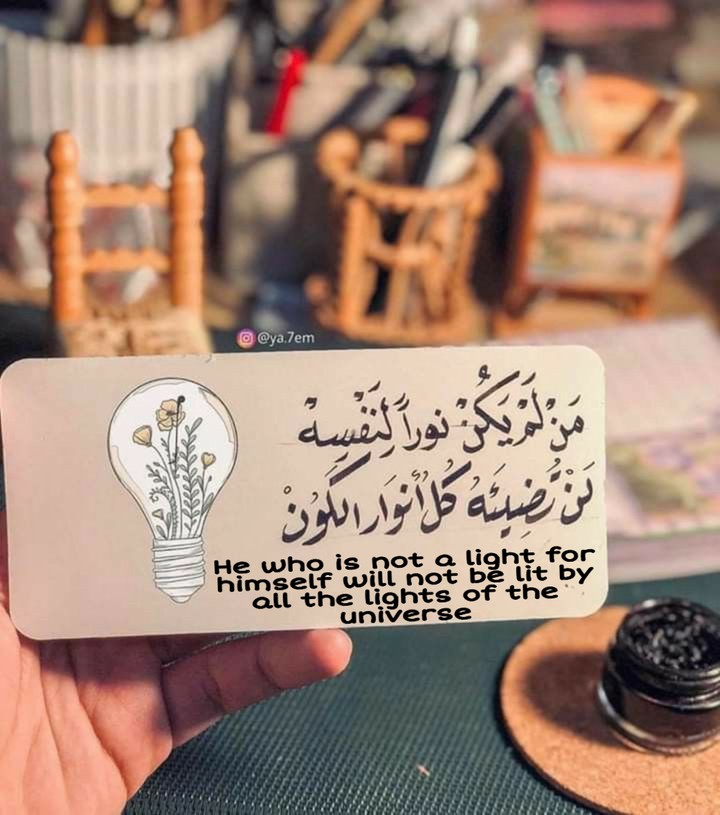 @ya.7em
مَنْ لَمْ يَكُنْ نوراً لِنَفْسِهْ
لَنْ تُضِيئَهُ كُلُّ أنوَار الكَوُنْ
He who is not a light for
himself will not be lit by
all the lights of the
universe